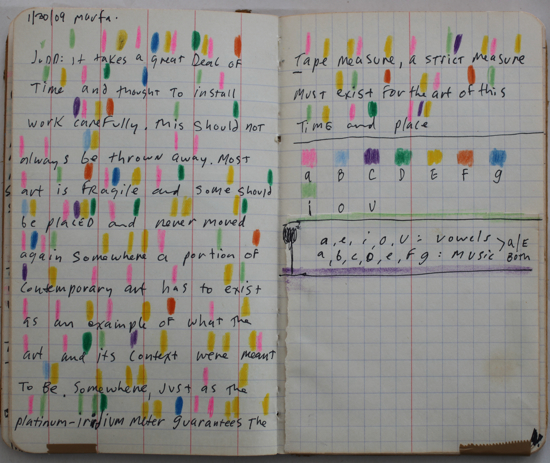 1/20/09 Marfa.
JUDD: it takes a great Deal of
Time and thought To install
work carefully. This should not
always be thrown away. Most
art is fragile and some should
be placed and never moved
again Somewhere a portion of
Contemporary art has to exist
as an example of what The
art and its context were meant
To Be. Somewhere, Just as The
platinum-iridium meter guarantees The
Tape measure, a strict measure
Must exist for the art of this
Time and place
a B C D E F g
i o U
a, e, i, o, U : vowels > a/E
a, b, c, D, e, F g : Music Both